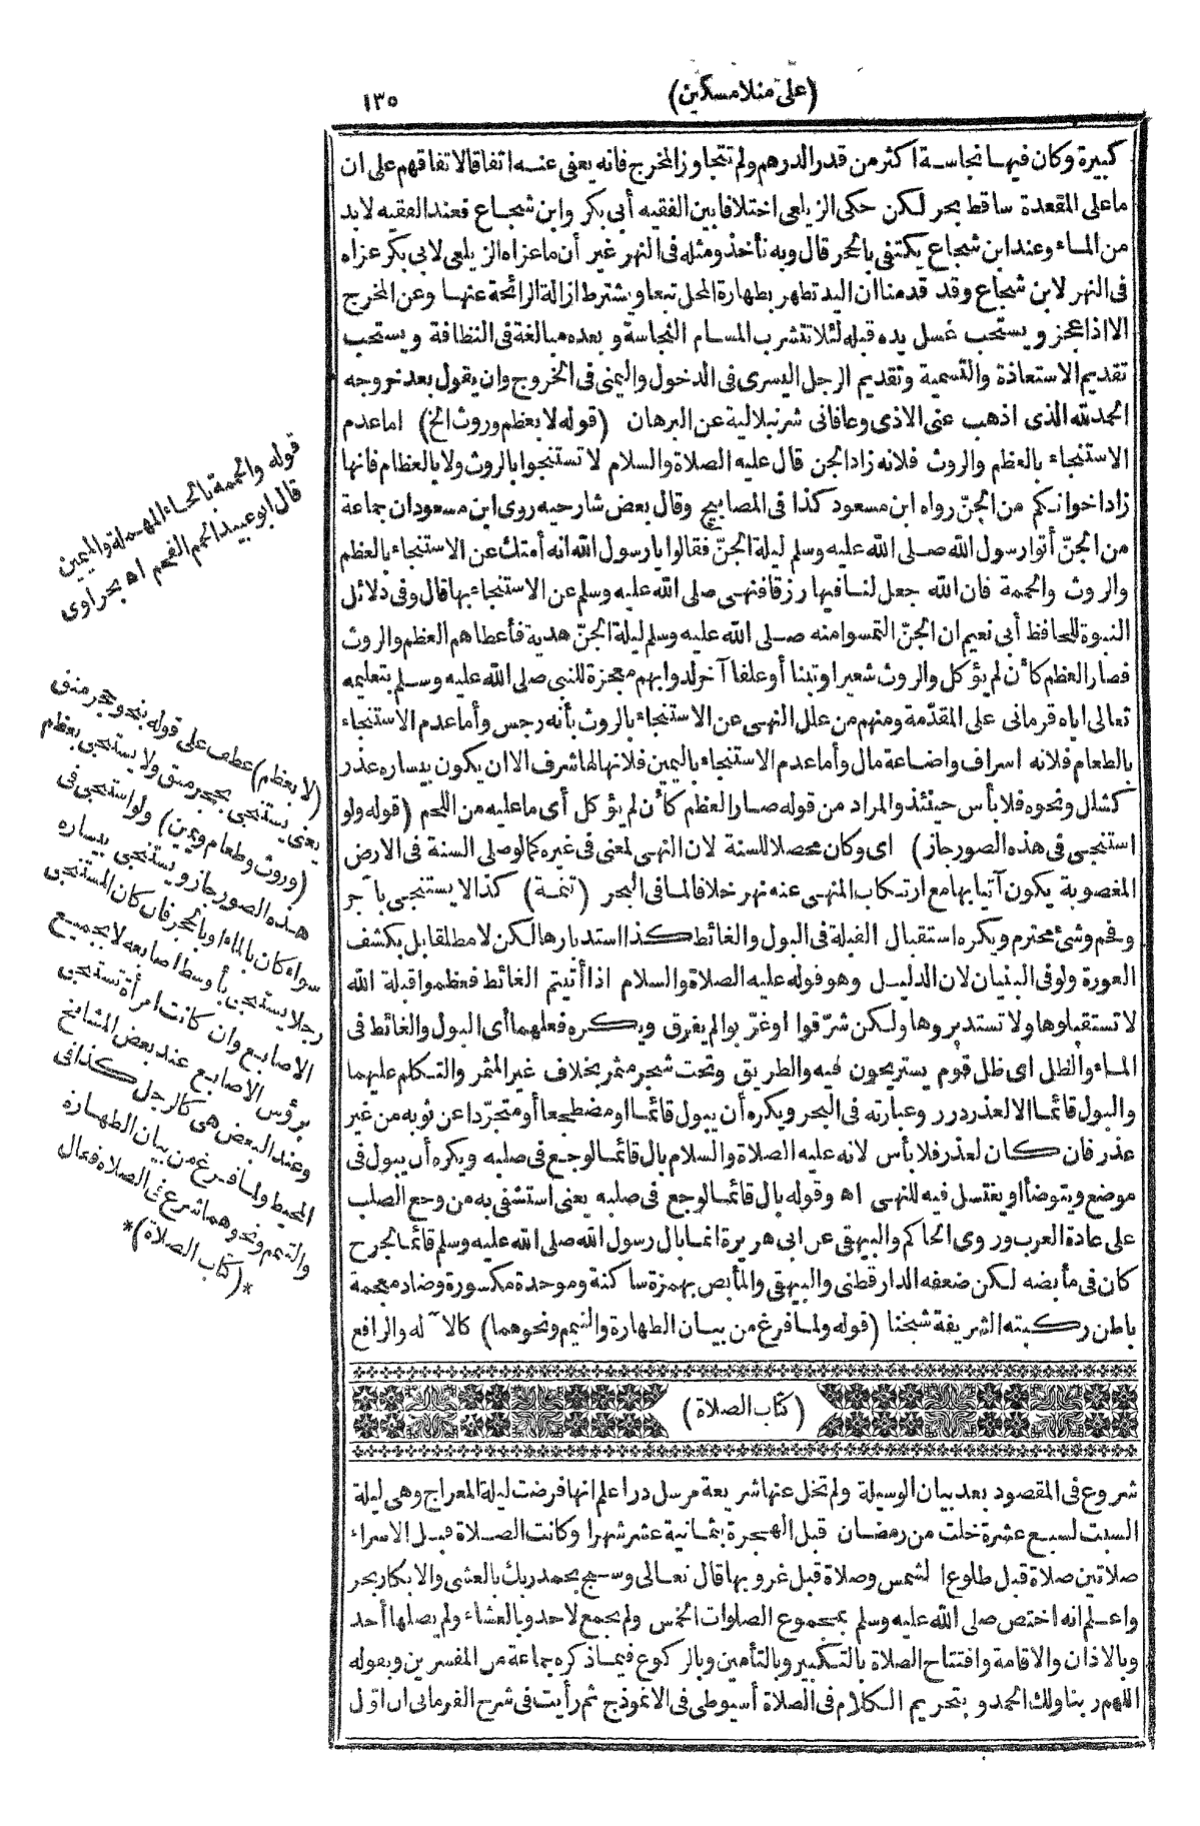 (على منلا مسكين)
١٣٥
كبيرة وكان فيها نجاسة اكثر من قدر الدرهم ولم تتجاوز المخرج فانه يعفى عنه اتفاقا لاتفاقهم على ان
ما على المقعدة ساقط بحر لكن حكى الزيلعى اختلافا بين الفقيه أبى بكر وابن شجاع فعند الفقيه لابد
من الماء وعند ابن شجاع يكتفى بالحجر قال وبه نأخذ ومثله فى النهر غير أن ما عزاه الزيلعى لابى بكر عزاه
فى النهر لابن شجاع وقد قدمنا ان اليد تطهر بطهارة المحل تبعا ويشترط ازالة الرائحة عنها وعن المخرج
الا اذا عجز ويستحب غسل يده قبله لئلا تتشرب المسام النجاسة وبعده مبالغة فى النظافة ويستحب
تقديم الاستعاذة والتسمية وتقديم الرجل اليسرى فى الدخول واليمنى فى الخروج وان يقول بعد خروجه
الحمدلله الذى اذهب عنى الاذى وعافانى شرنبلالية عن البرهان (قوله لا بعظم وروث الخ) اما عدم
الاستنجاء بالعظم والروث فلانه زاد الجن قال عليه الصلاة والسلام لا تستنجوا بالروث ولا بالعظام فانها
زاد اخوانكم من الجنّ رواه ابن مسعود كذا فى المصابيح وقال بعض شارحيه روى ابن مسعود ان جماعة
من الجنّ أتوا رسول الله صلى الله عليه وسلم ليلة الجنّ فقالوا يا رسول الله انه أمتك عن الاستنجاء بالعظم
والروث والحممة فان الله جعل لنا فيها رزقا فنهى صلى الله عليه وسلم عن الاستنجاء بها قال وفى دلائل
النبوة للحافظ أبى نعيم ان الجنّ التمسوا منه صلى الله عليه وسلم ليلة الجنّ هدية فأعطاهم العظم والروث
فصار العظم كأن لم يؤكل والروث شعيرا وتبنا أو علفا آخر لدوابهم معجزة للنبى صلى الله عليه وسلم بتعليمه
تعالى اياه قرمانى على المقدّمة ومنهم من علل النهى عن الاستنجاء بالروث بأنه رجس وأما عدم الاستنجاء
بالطعام فلانه اسراف واضاعة مال وأما عدم الاستنجاء باليمين فلانها لها شرف الا ان يكون بيساره عذر
كشلل ونحوه فلا بأس حينئذ والمراد من قوله صار العظم كأن لم يؤكل أى ما عليه من اللحم (قوله ولو
استنجى فى هذه الصور جاز) اى وكان محصلا للسنة لان النهى لمعنى فى غيره كما لو صلى السنة فى الارض
المغصوبة يكون آتيا بها مع ارتكاب المنهى عنه نهر خلافا لما فى البحر (تتمة) كذا لا يستنجى بآجر
وفحم وشئ محترم ويكره استقبال القبلة فى البول والغائط كذا استدبارها لكن لا مطلقا بل بكشف
العورة ولو فى البنيان لان الدليل وهو قوله عليه الصلاة والسلام اذا أتيتم الغائط فعظموا قبلة الله
لا تستقبلوها ولا تستدبروها ولكن شرّقوا او غرّبوا لم يفرق ويكره فعلهما أى البول والغائط فى
الماء والظل اى ظل قوم يستريحون فيه والطريق وتحت شجر مثمر بخلاف غير المثمر والتكلم عليهما
والبول قائما الا لعذر درر وعبارته فى البحر ويكره أن يبول قائما او مضطجعا أو متجرّدا عن ثوبه من غير
عذر فان كان لعذر فلا بأس لانه عليه الصلاة والسلام بال قائما لوجع فى صلبه ويكره أن يبول فى
موضع ويتوضأ او يغتسل فيه للنهى اه وقوله بال قائما لوجع فى صلبه يعنى استشفى به من وجع الصلب
على عادة العرب وروى الحاكم والبيهقى عن ابى هريرة انما بال رسول الله صلى الله عليه وسلم قائما لجرح
كان فى مأبضه لكن ضعفه الدارقطنى والبيهقى والمأبض بهمزة ساكنة وموحدة مكسورة وضاد معجمة
باطن ركبته الشريفة شيخنا (قوله ولما فرغ من بيان الطهارة والتيمم ونحوهما) كالآلة والرافع
(كتاب الصلاة)
شروع فى المقصود بعد بيان الوسيلة ولم تخل عنها شريعة مرسل در اعلم انها فرضت ليلة المعراج وهى ليلة
السبت لسبع عشرة خلت من رمضان قبل الهجرة بثمانية عشر شهرا وكانت الصلاة قبل الاسراء
صلاتين صلاة قبل طلوع الشمس وصلاة قبل غروبها قال تعالى وسبح بحمد ربك بالعشى والابكار بحر
واعلم انه اختص صلى الله عليه وسلم بمجموع الصلوات الخمس ولم يجمع لاحد وبالعشاء ولم يصلها أحد
وبالاذان والاقامة وافتتاح الصلاة بالتكبير وبالتأمين وبالركوع فيما ذكره جماعة من المفسرين وبقوله
اللهم ربنا ولك الحمد وبتحريم الكلام فى الصلاة أسيوطى فى الانموذج ثم رأيت فى شرح القرمانى ان اوّل
قوله والحممة بالحاء المهملة والميمين
قال ابو عبيد الحمم الفحم اه بحراوى
(لا بعظم) عطف على قوله بنحو حجر منق
يعنى يستنجى بحجر منق ولا يستنجى بعظم
(وروث وطعام ويمين) ولو استنجى فى
هذه الصور جاز ويستنجى بيساره
سواء كان بالماء او بالحجر فان كان المستنجى
رجلا يستنجى بأوسط اصابعه لا بجميع
الاصابع وان كانت امرأة تستنجى
برؤس الاصابع عند بعض المشايخ
وعند البعض هى كالرجل كذا فى
المحيط ولما فرغ من بيان الطهارة
والتيمم ونحوهما شرع فى الصلاة فقال
*(كتاب الصلاة)*